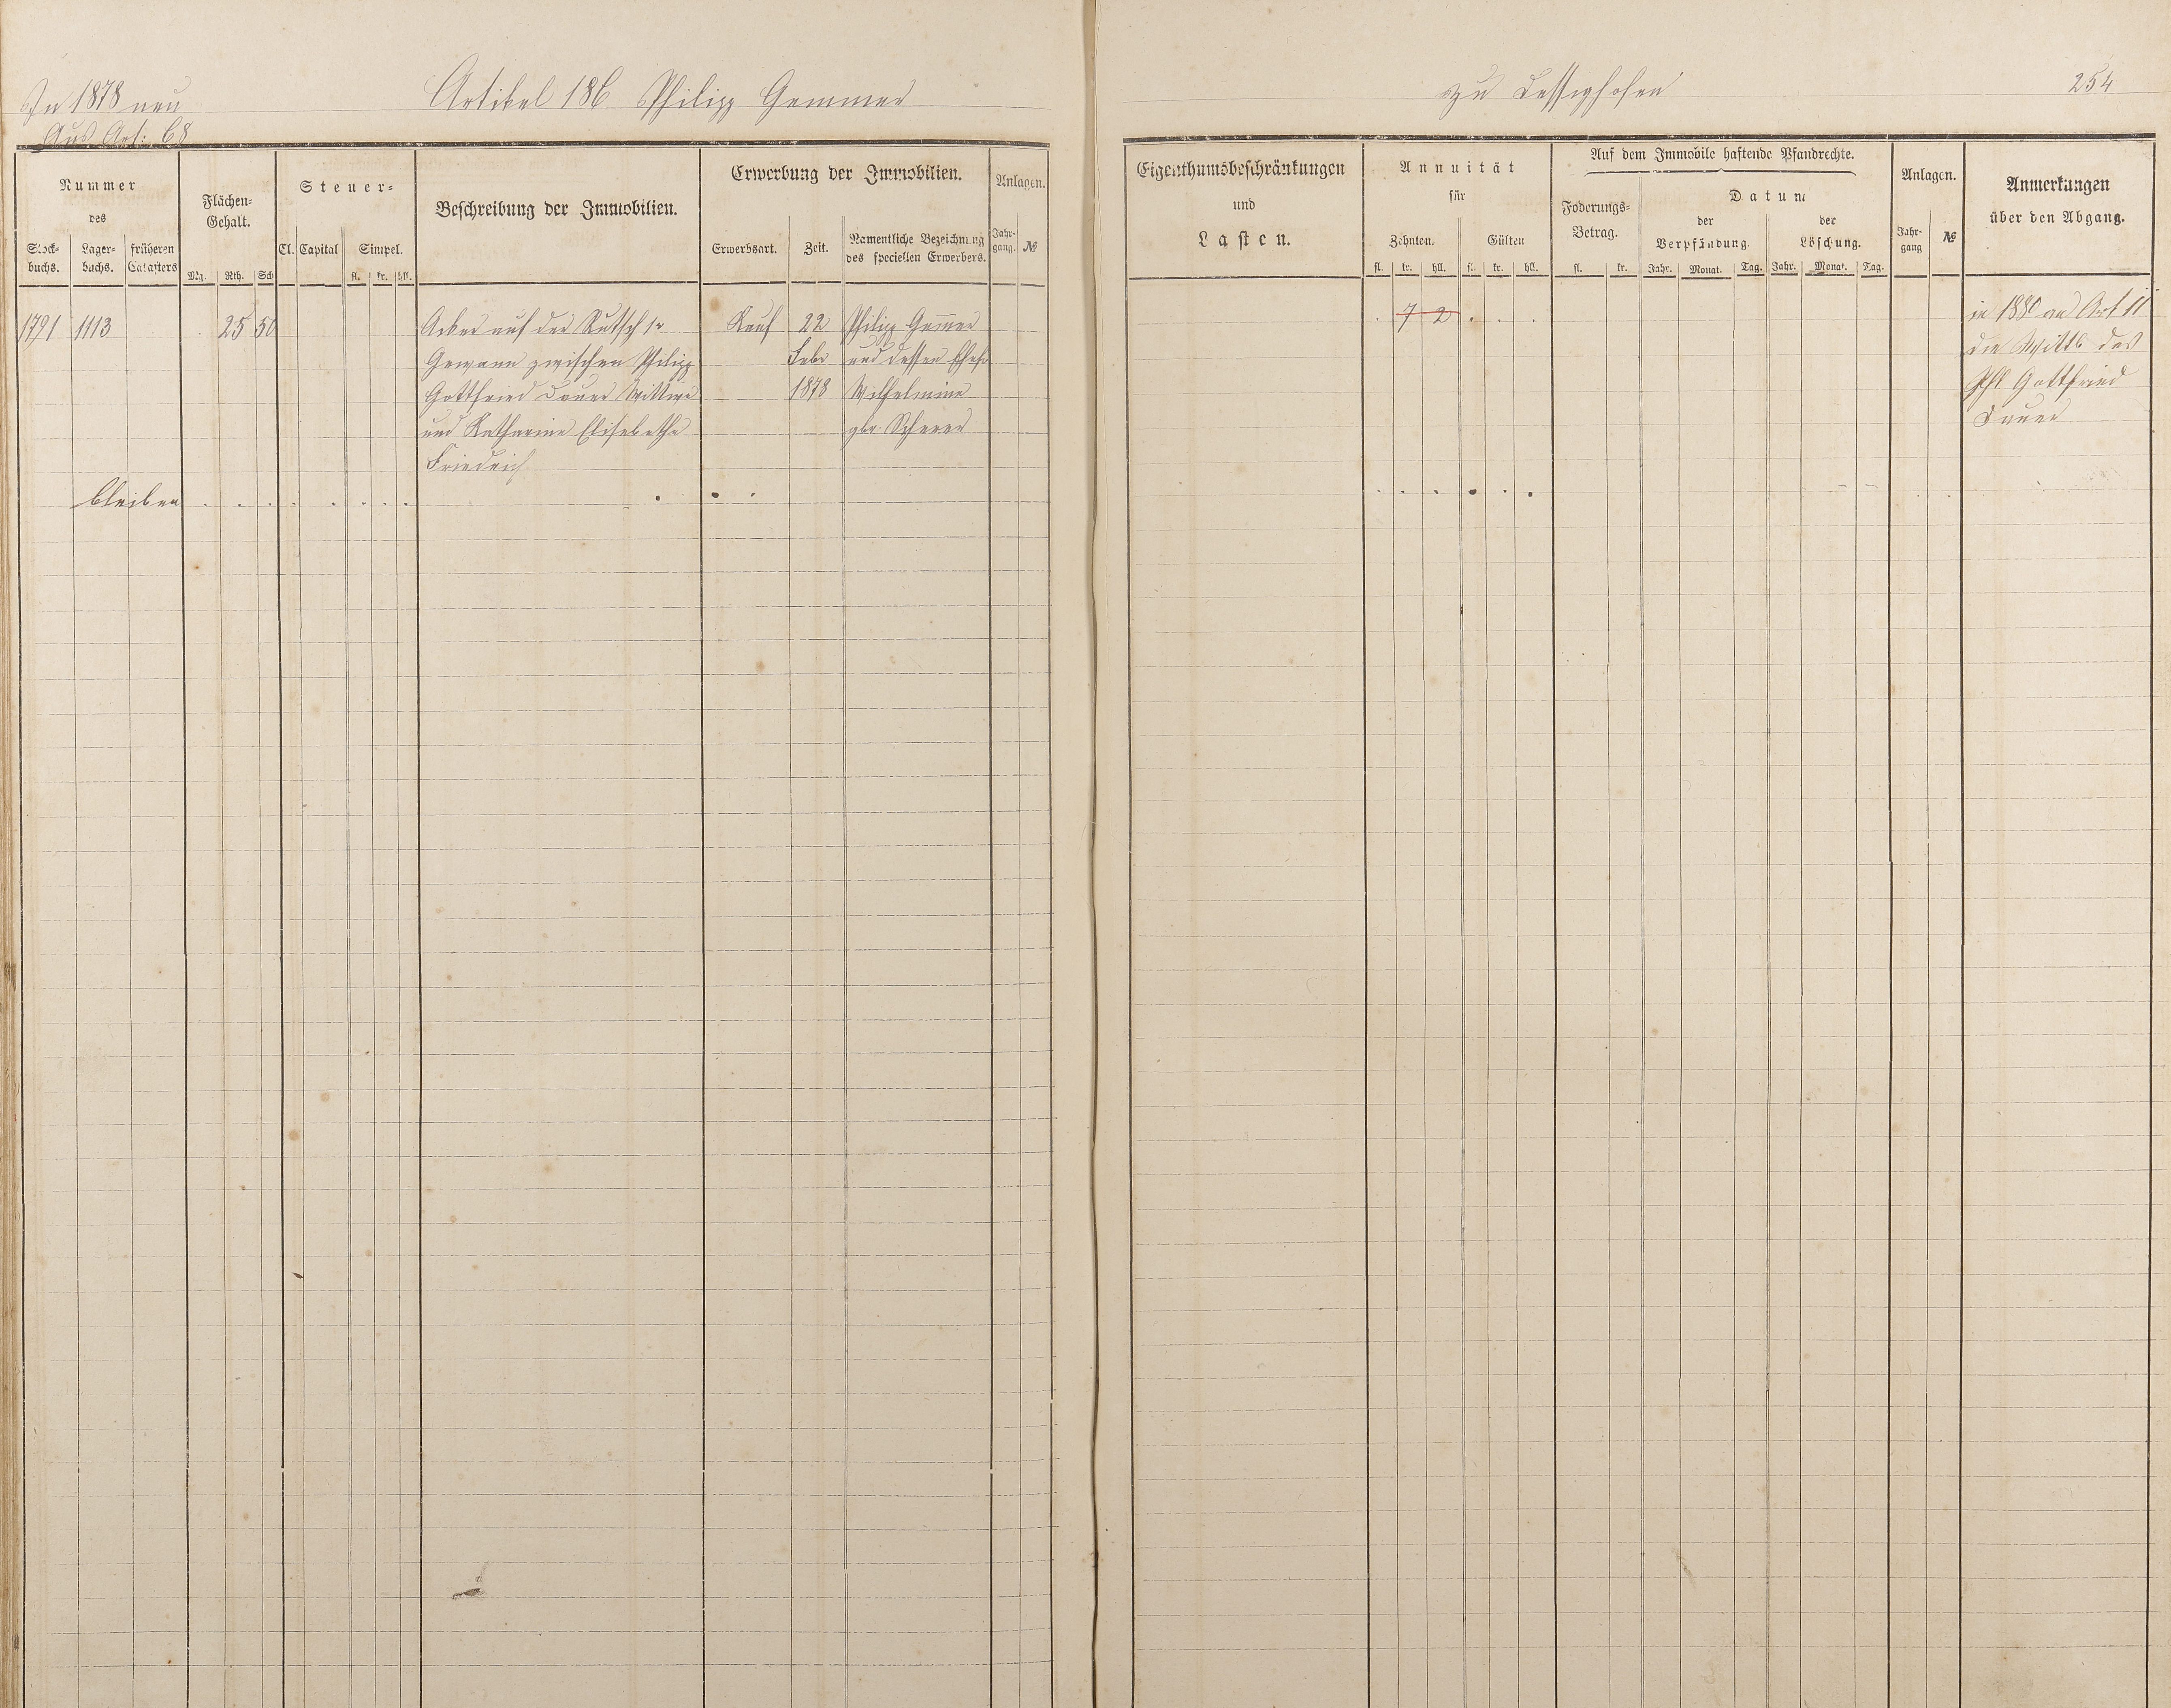 In 1878 neu
Aus Art: 68
Artikel 186 Philipp Gemmer
Nummer
des
Stock-
buchs.
Lager-
buchs.
früheren
Catasters
Flächen-
Gehalt.
Mg. Rth. Sch
Steuer-
Cl. Capital Simpel.
fl. kr. hll.
Beschreibung der Immobilien.
Erwerbung der Immobilien.
Erwerbsart. Zeit.
Namentliche Bezeichnung
des speciellen Erwerbers.
Anlagen.
Jahr-
gang. №
1791 1113 25 50
Acker auf der Rutsch 1r
Gewann zwischen Philipp
Gottfried Dauer Wittwe
und Katharine Elisabetha
Friedrich
Kauf
22
Febr
1878
Philipp Gemmer
und dessen Ehefr
Wilhelmine
gbr. Scherer
bleiben
254
Eigenthumsbeschränkungen
und
Lasten.
Annuität
für
Zehnten. Gülten
fl. kr. hll. fl. kr. hll.
Auf dem Immobile haftende Pfandrechte.
Foderungs-
Betrag.
fl. kr.
Datum
der
Verpfändung.
Jahr. Monat. Tag.
der
Löschung.
Jahr. Monat. Tag.
Anlagen.
Jahr-
gang №
Anmerkungen
über den Abgang.
7 2
in 1880 an Art 11
die Wittb des
Phl Gottfried
Dauer